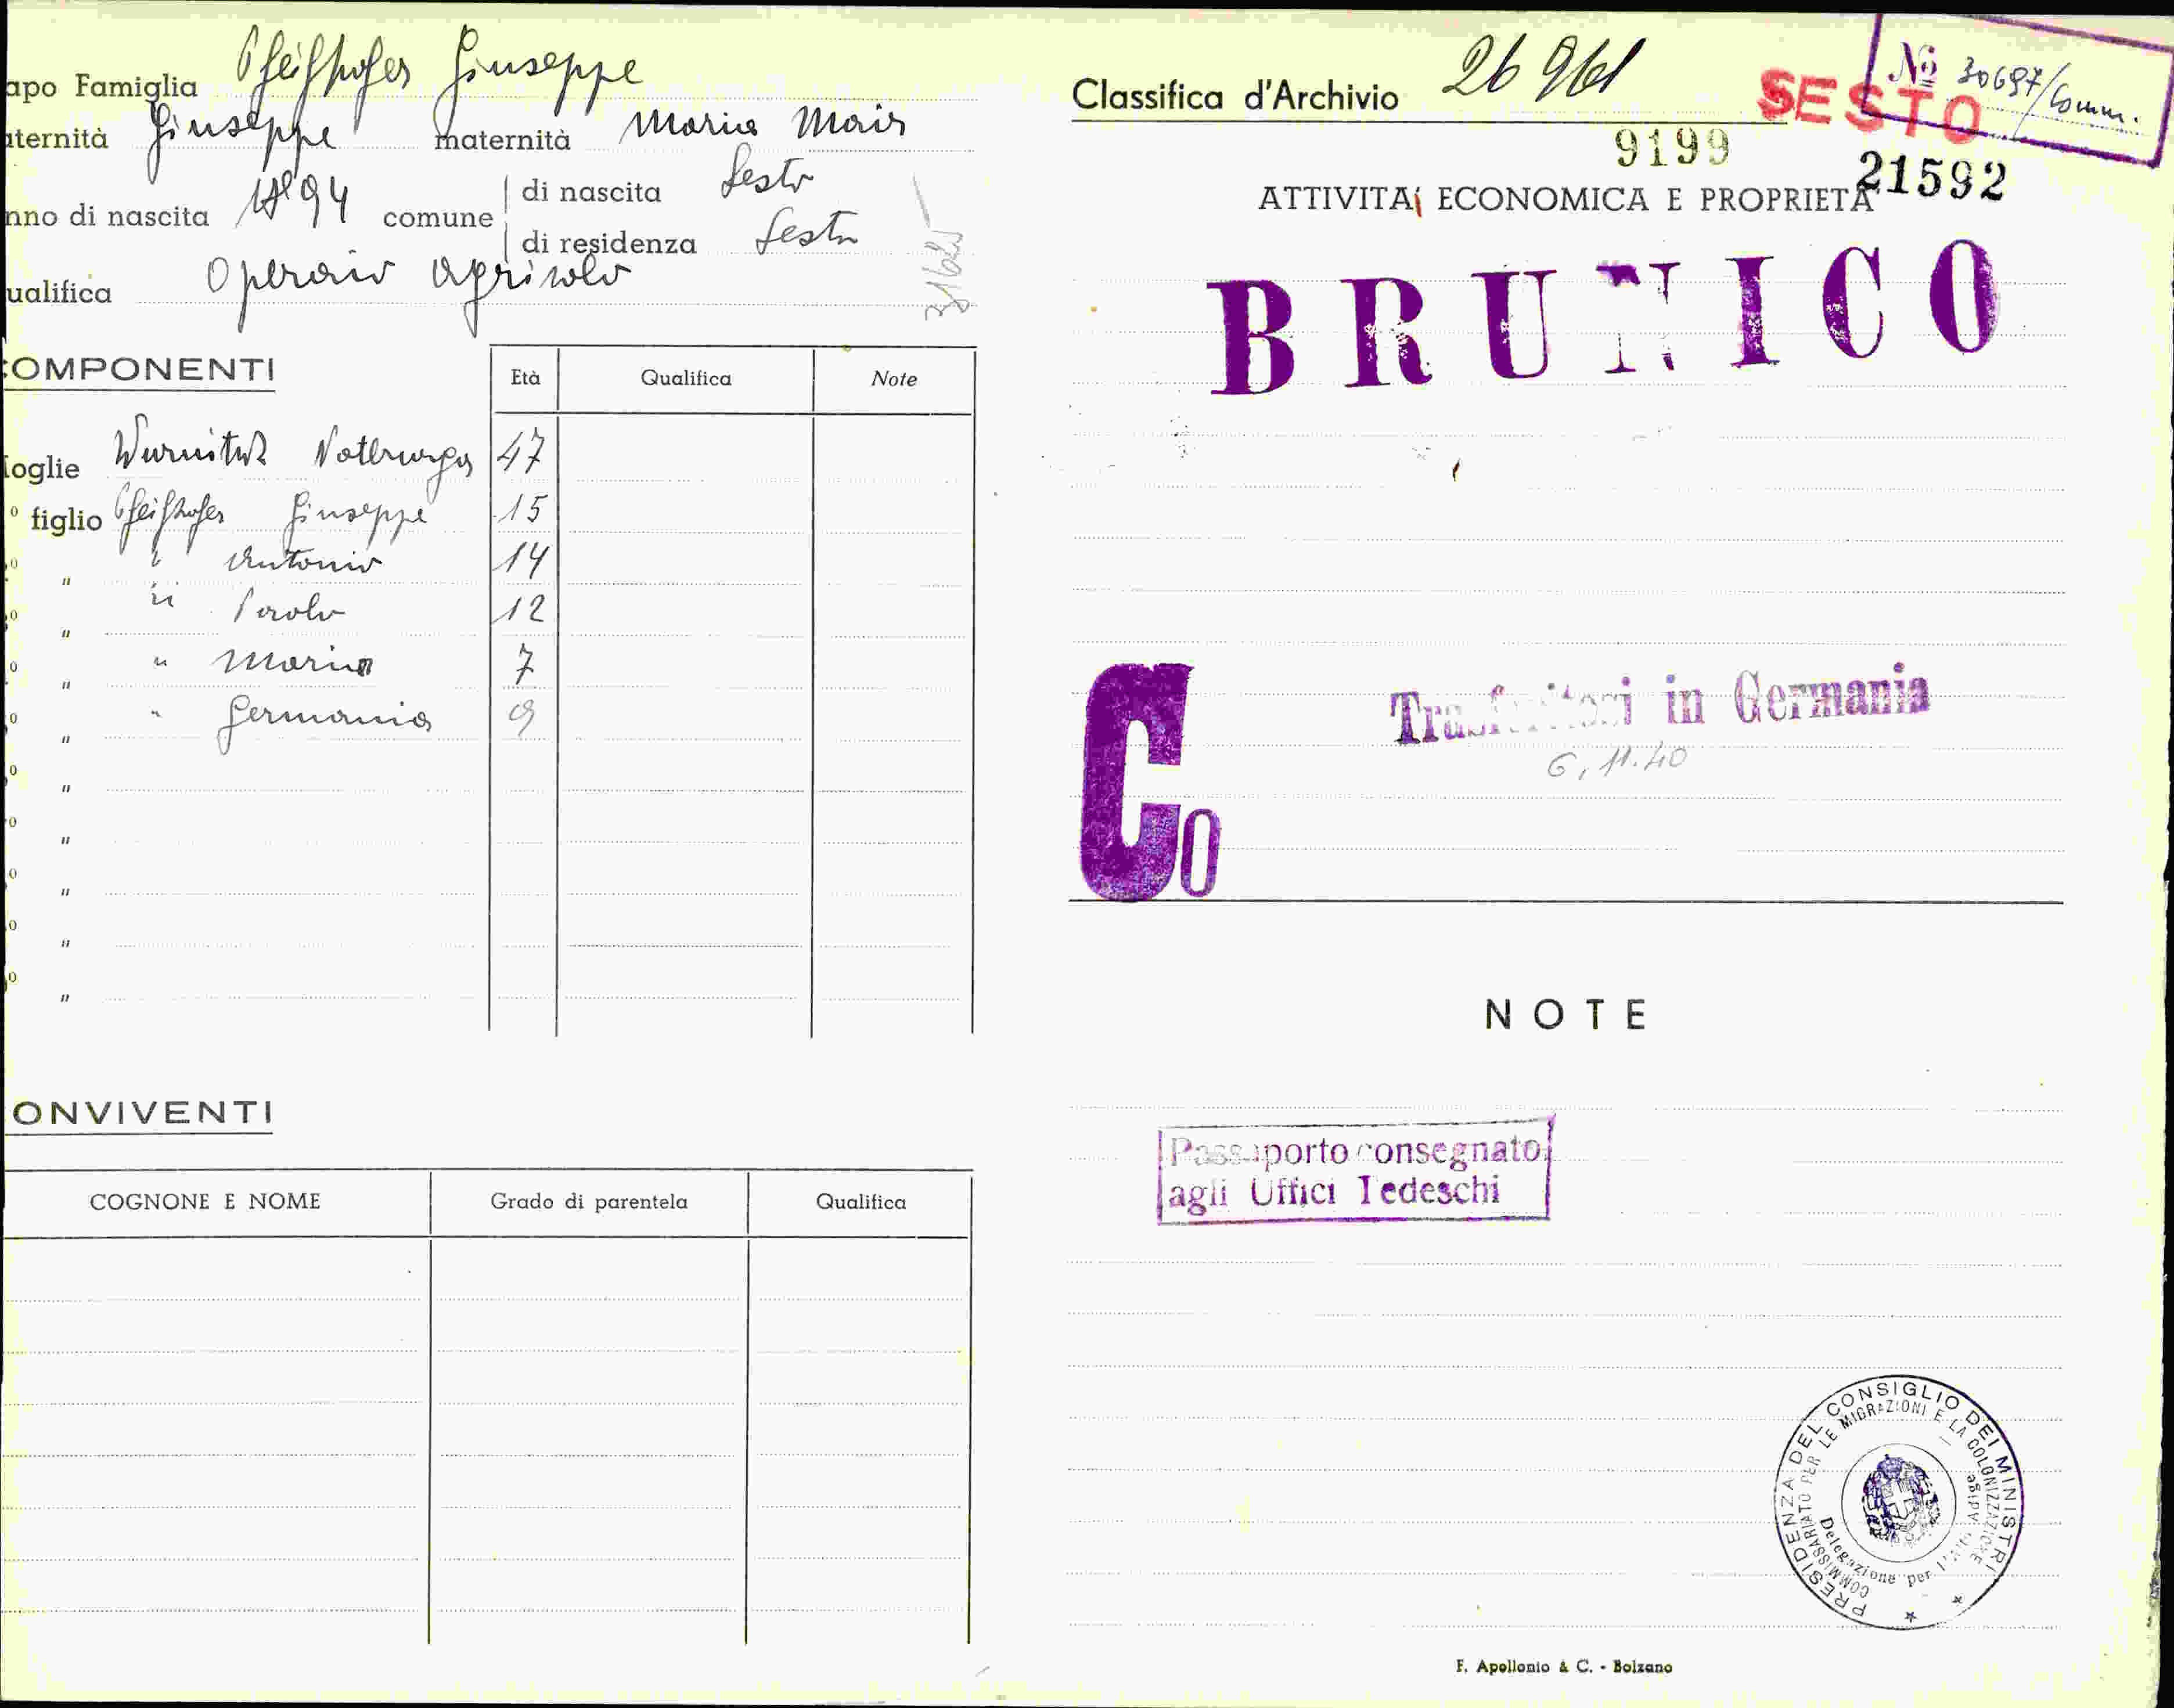 apo Famiglia Pfeifhofer Giuseppe
aternità Giuseppe maternità Maria Mair
nno di nascita 1894 comune di nascita Sesto
di residenza Sesto
ualifica Operaio agricolo
31625
COMPONENTI
Età Qualifica Note
oglie Notburga 47
° figlio Pfeifhofer Giuseppe 15
° " " Antonio 14
° " " Paolo 12
° " " Maria 7
° " " Germania 9
° "
° "
° "
° "
° "
ONVIVENTI
COGNONE E NOME Grado di parentela Qualifica
Classifica d'Archivio 26961
SESTO
No 30697/Comm.
9199
21592
ATTIVITA' ECONOMICA E PROPRIETA'
BRUNICO
Co
Trasferitosi in Germania
6.11.40
NOTE
Passaporto consegnato
agli Uffici Tedeschi
PRESIDENZA DEL CONSIGLIO DEI MINISTRI
COMMISSARIATO PER LE MIGRAZIONI E LA COLONIZZAZIONE
Delegazione per l'Alto Adige
F. Apollonio & C. - Bolzano